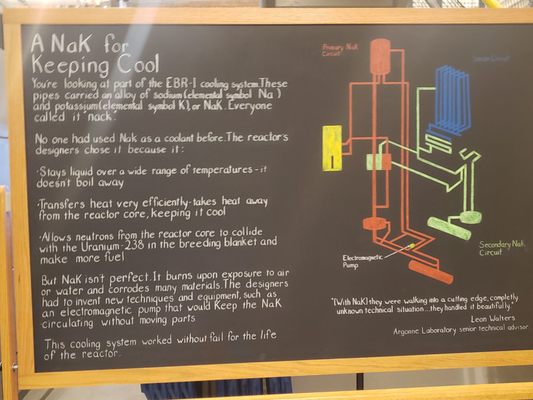 A NaK for
Keeping Cool
You're looking at part of the EBR-I cooling system. These
pipes carried an alloy of sodium (elemental symbol Na)
and potassium (elemental symbol K), or NaK. Everyone
called it "nack."
No one had used NaK as a coolant before. The reactor's
designers chose it because it:
·Stays liquid over a wide range of temperatures - it
doesn't boil away
·Transfers heat very efficiently - takes heat away
from the reactor core, keeping it cool
·Allows neutrons from the reactor core to collide
with the Uranium-238 in the breeding blanket and
make more fuel
But NaK isn't perfect. It burns upon exposure to air
or water and corrodes many materials. The designers
had to invent new techniques and equipment, such as
an electromagnetic pump that would keep the NaK
circulating without moving parts
This cooling system worked without fail for the life
of the reactor.
Primary NaK
Circuit
Circuit
Electromagnetic
Pump
Secondary NaK
Circuit
"[With NaK] they were walking into a cutting edge, completly
unknown technical situation...they handled it beautifully."
Leon Walters
Argonne Laboratory senior technical advisor